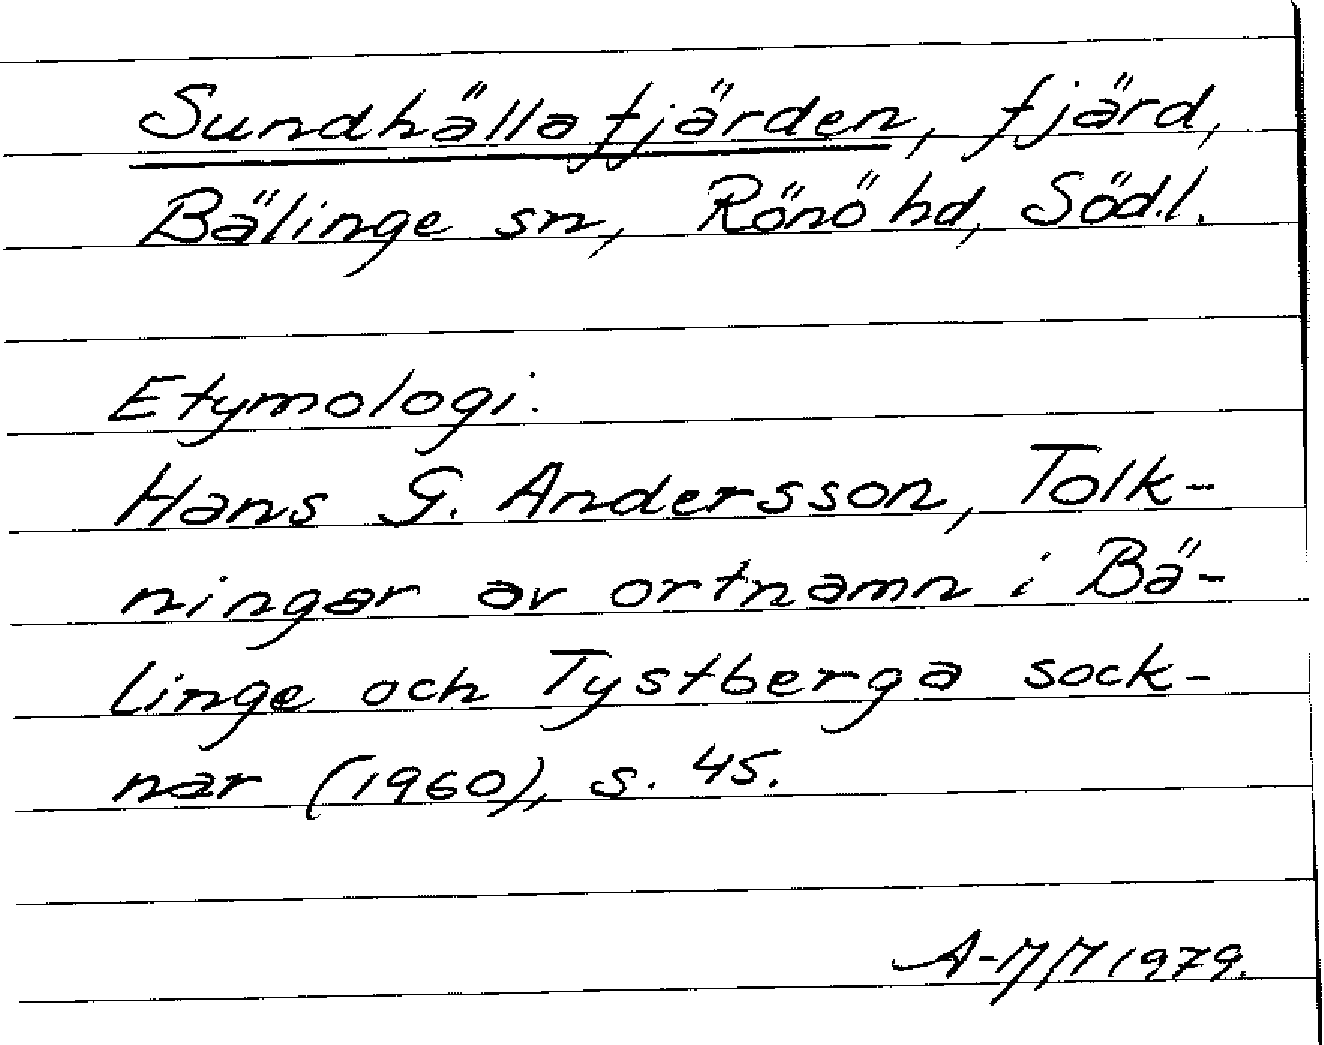 Sundhällafjärden, fjärd,
Bälinge sn, Rönö hd, Södl.
Etymologi.
Hans G. Andersson, Tolk-
ningar av ortnamn i Bä-
linge och Tystberga sock-
nar (1960), s. 45.
A-MM 1979.